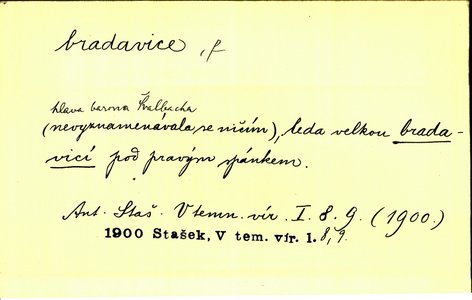 bradavice, f
hlava barona Kalbacha
(nevyznamenávala se ničím), leda velkou brada-
vicí pod pravým spánkem.
Ant. Staš. V temn. vír. I. 8. 9. (1900.)
1900 Stašek, V tem. vír. 1. 8, 9.